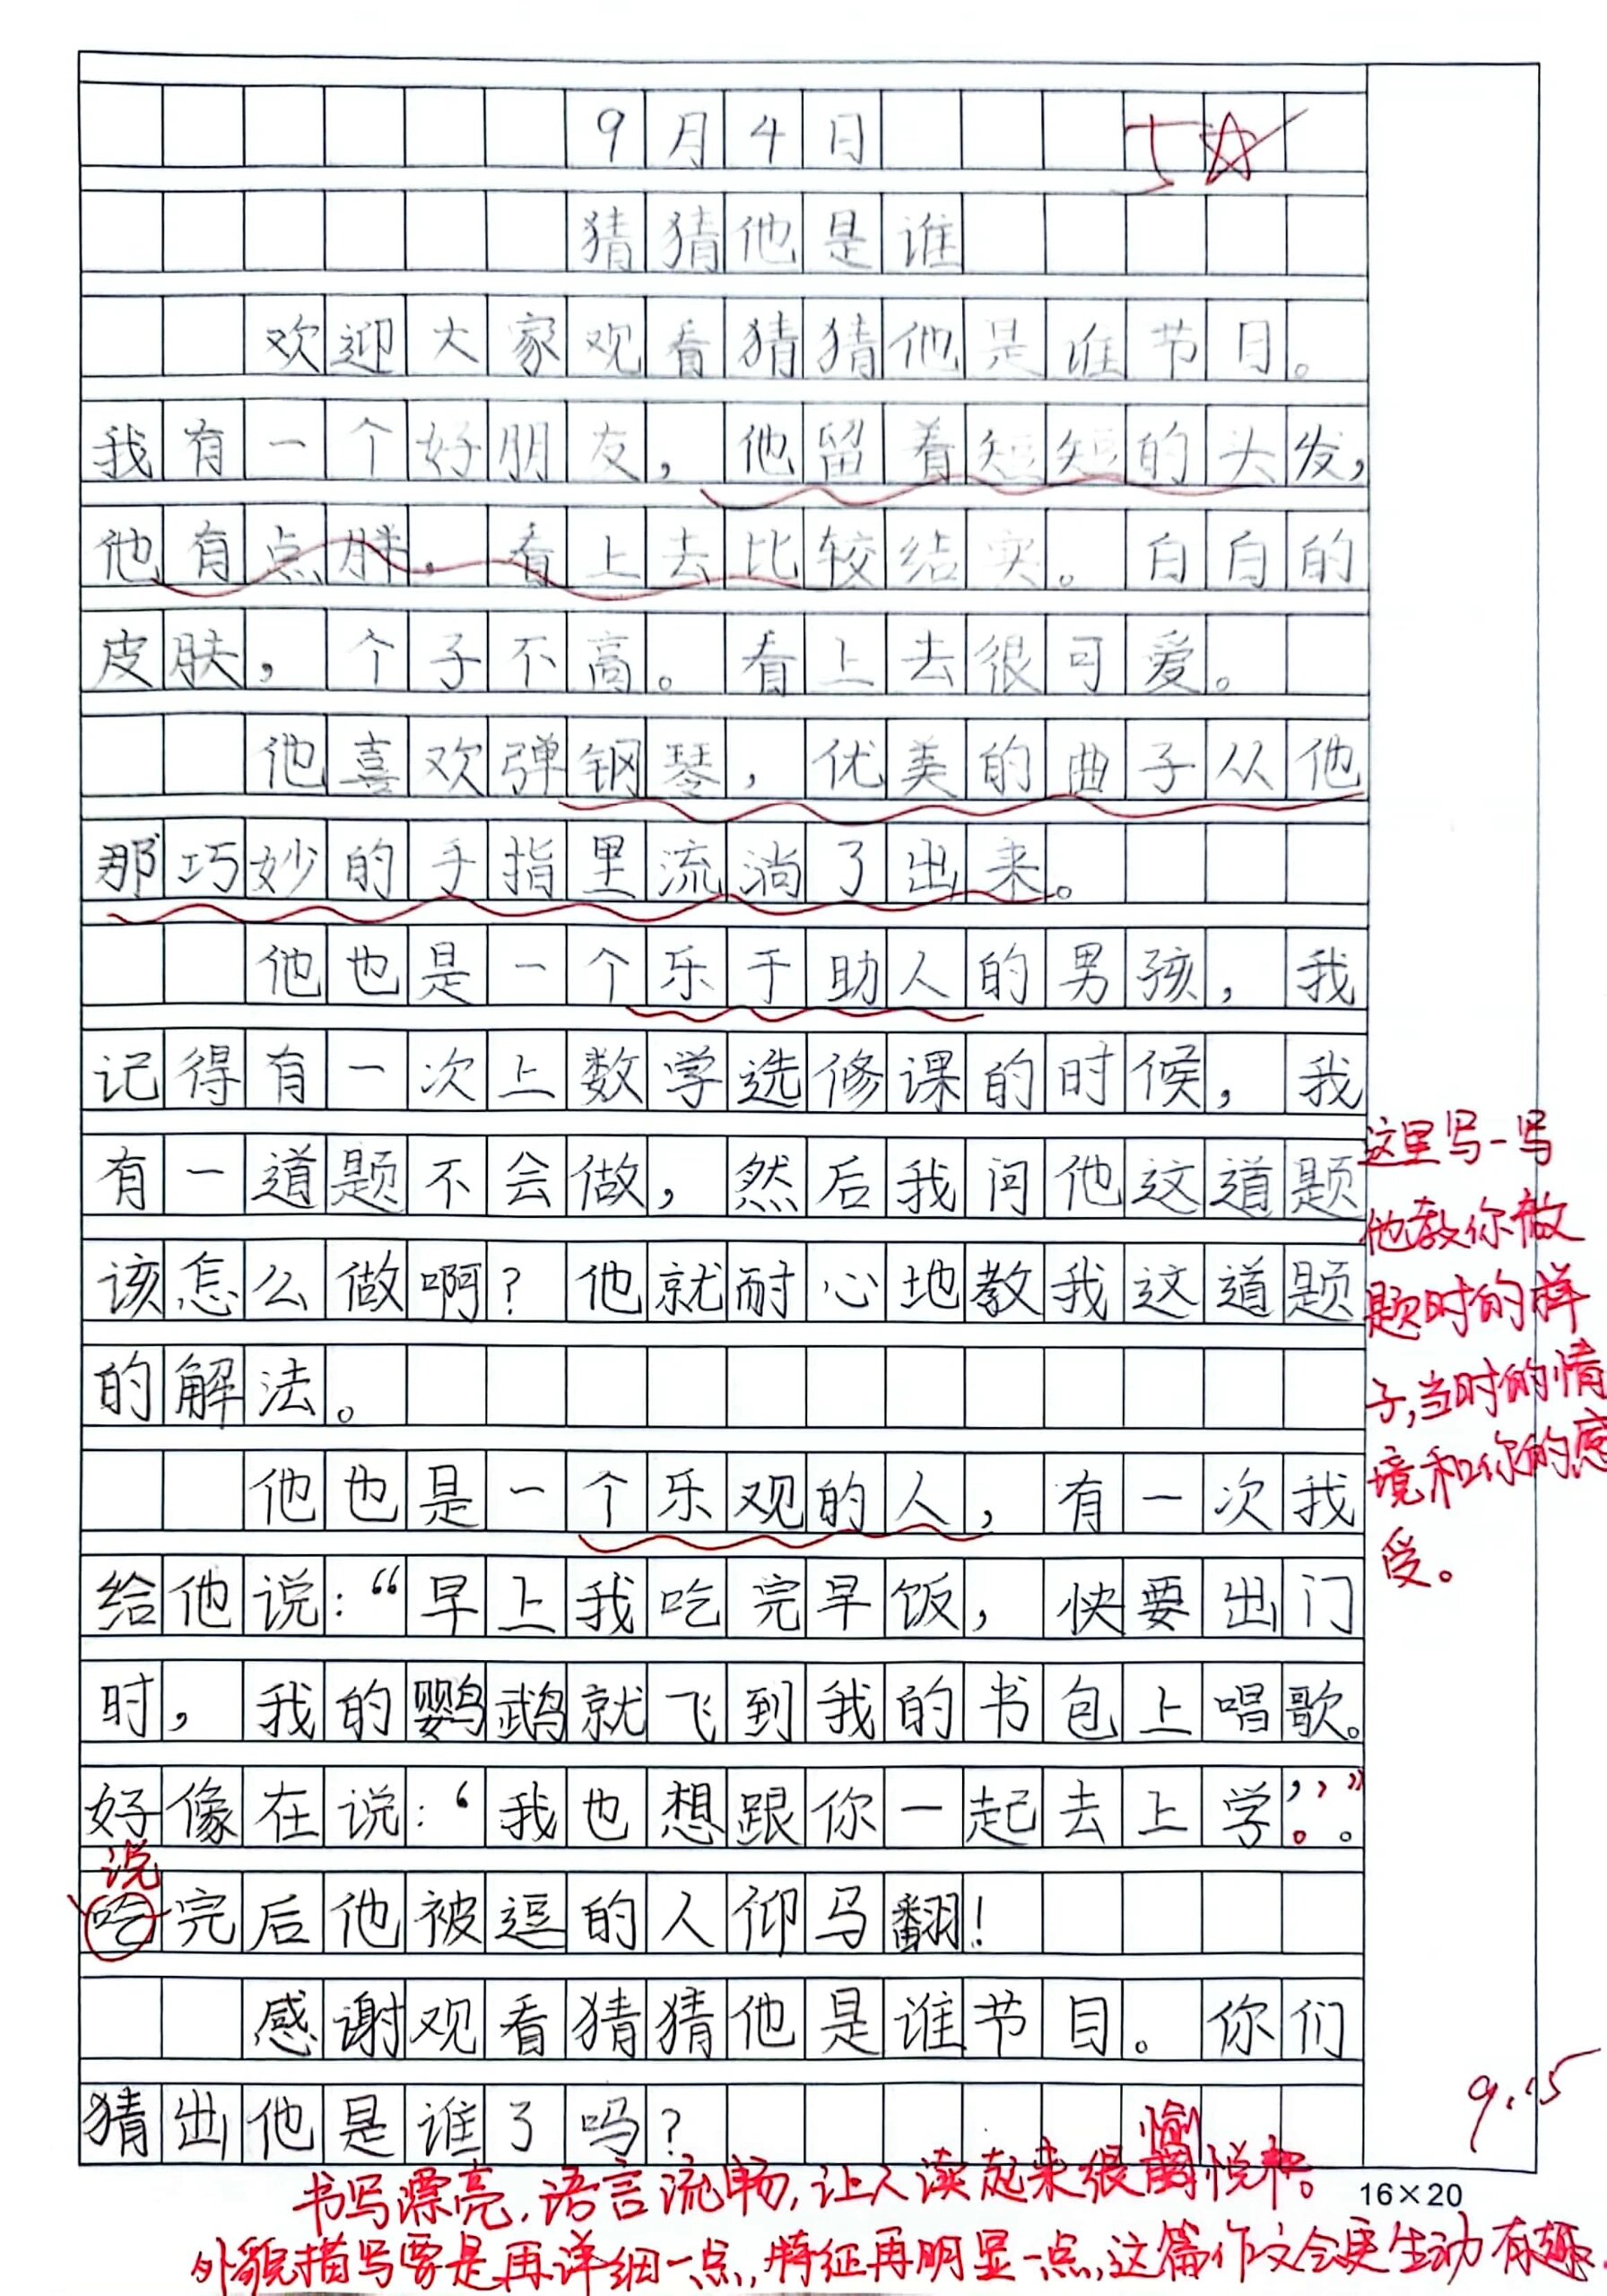 9月4日
5☆
猜猜他是谁
欢迎大家观看猜猜他是谁节目。
我有一个好朋友，他留着短短的头发，
他有点胖，看上去比较结实。白白的
皮肤，个子不高。看上去很可爱。
他喜欢弹钢琴，优美的曲子从他
那巧妙的手指里流淌了出来。
他也是一个乐于助人的男孩，我
记得有一次上数学选修课的时候，我
有一道题不会做，然后我问他这道题
该怎么做啊？他就耐心地教我这道题
的解法。
他也是一个乐观的人，有一次我
给他说：“早上我吃完早饭，快要出门
时，我的鹦鹉就飞到我的书包上唱歌。
好像在说：‘我也想跟你一起去上学。’”。
说
吃完后他被逗的人仰马翻！
感谢观看猜猜他是谁节目。你们
猜出他是谁了吗？
这里写一写
他教你做
题时的样
子，当时的情
境和你的感
受。
9.15
书写漂亮，语言流畅，让人读起来很愉悦。
16×20
外貌描写要是再详细一点，特征再明显一点，这篇作文会更生动有趣。